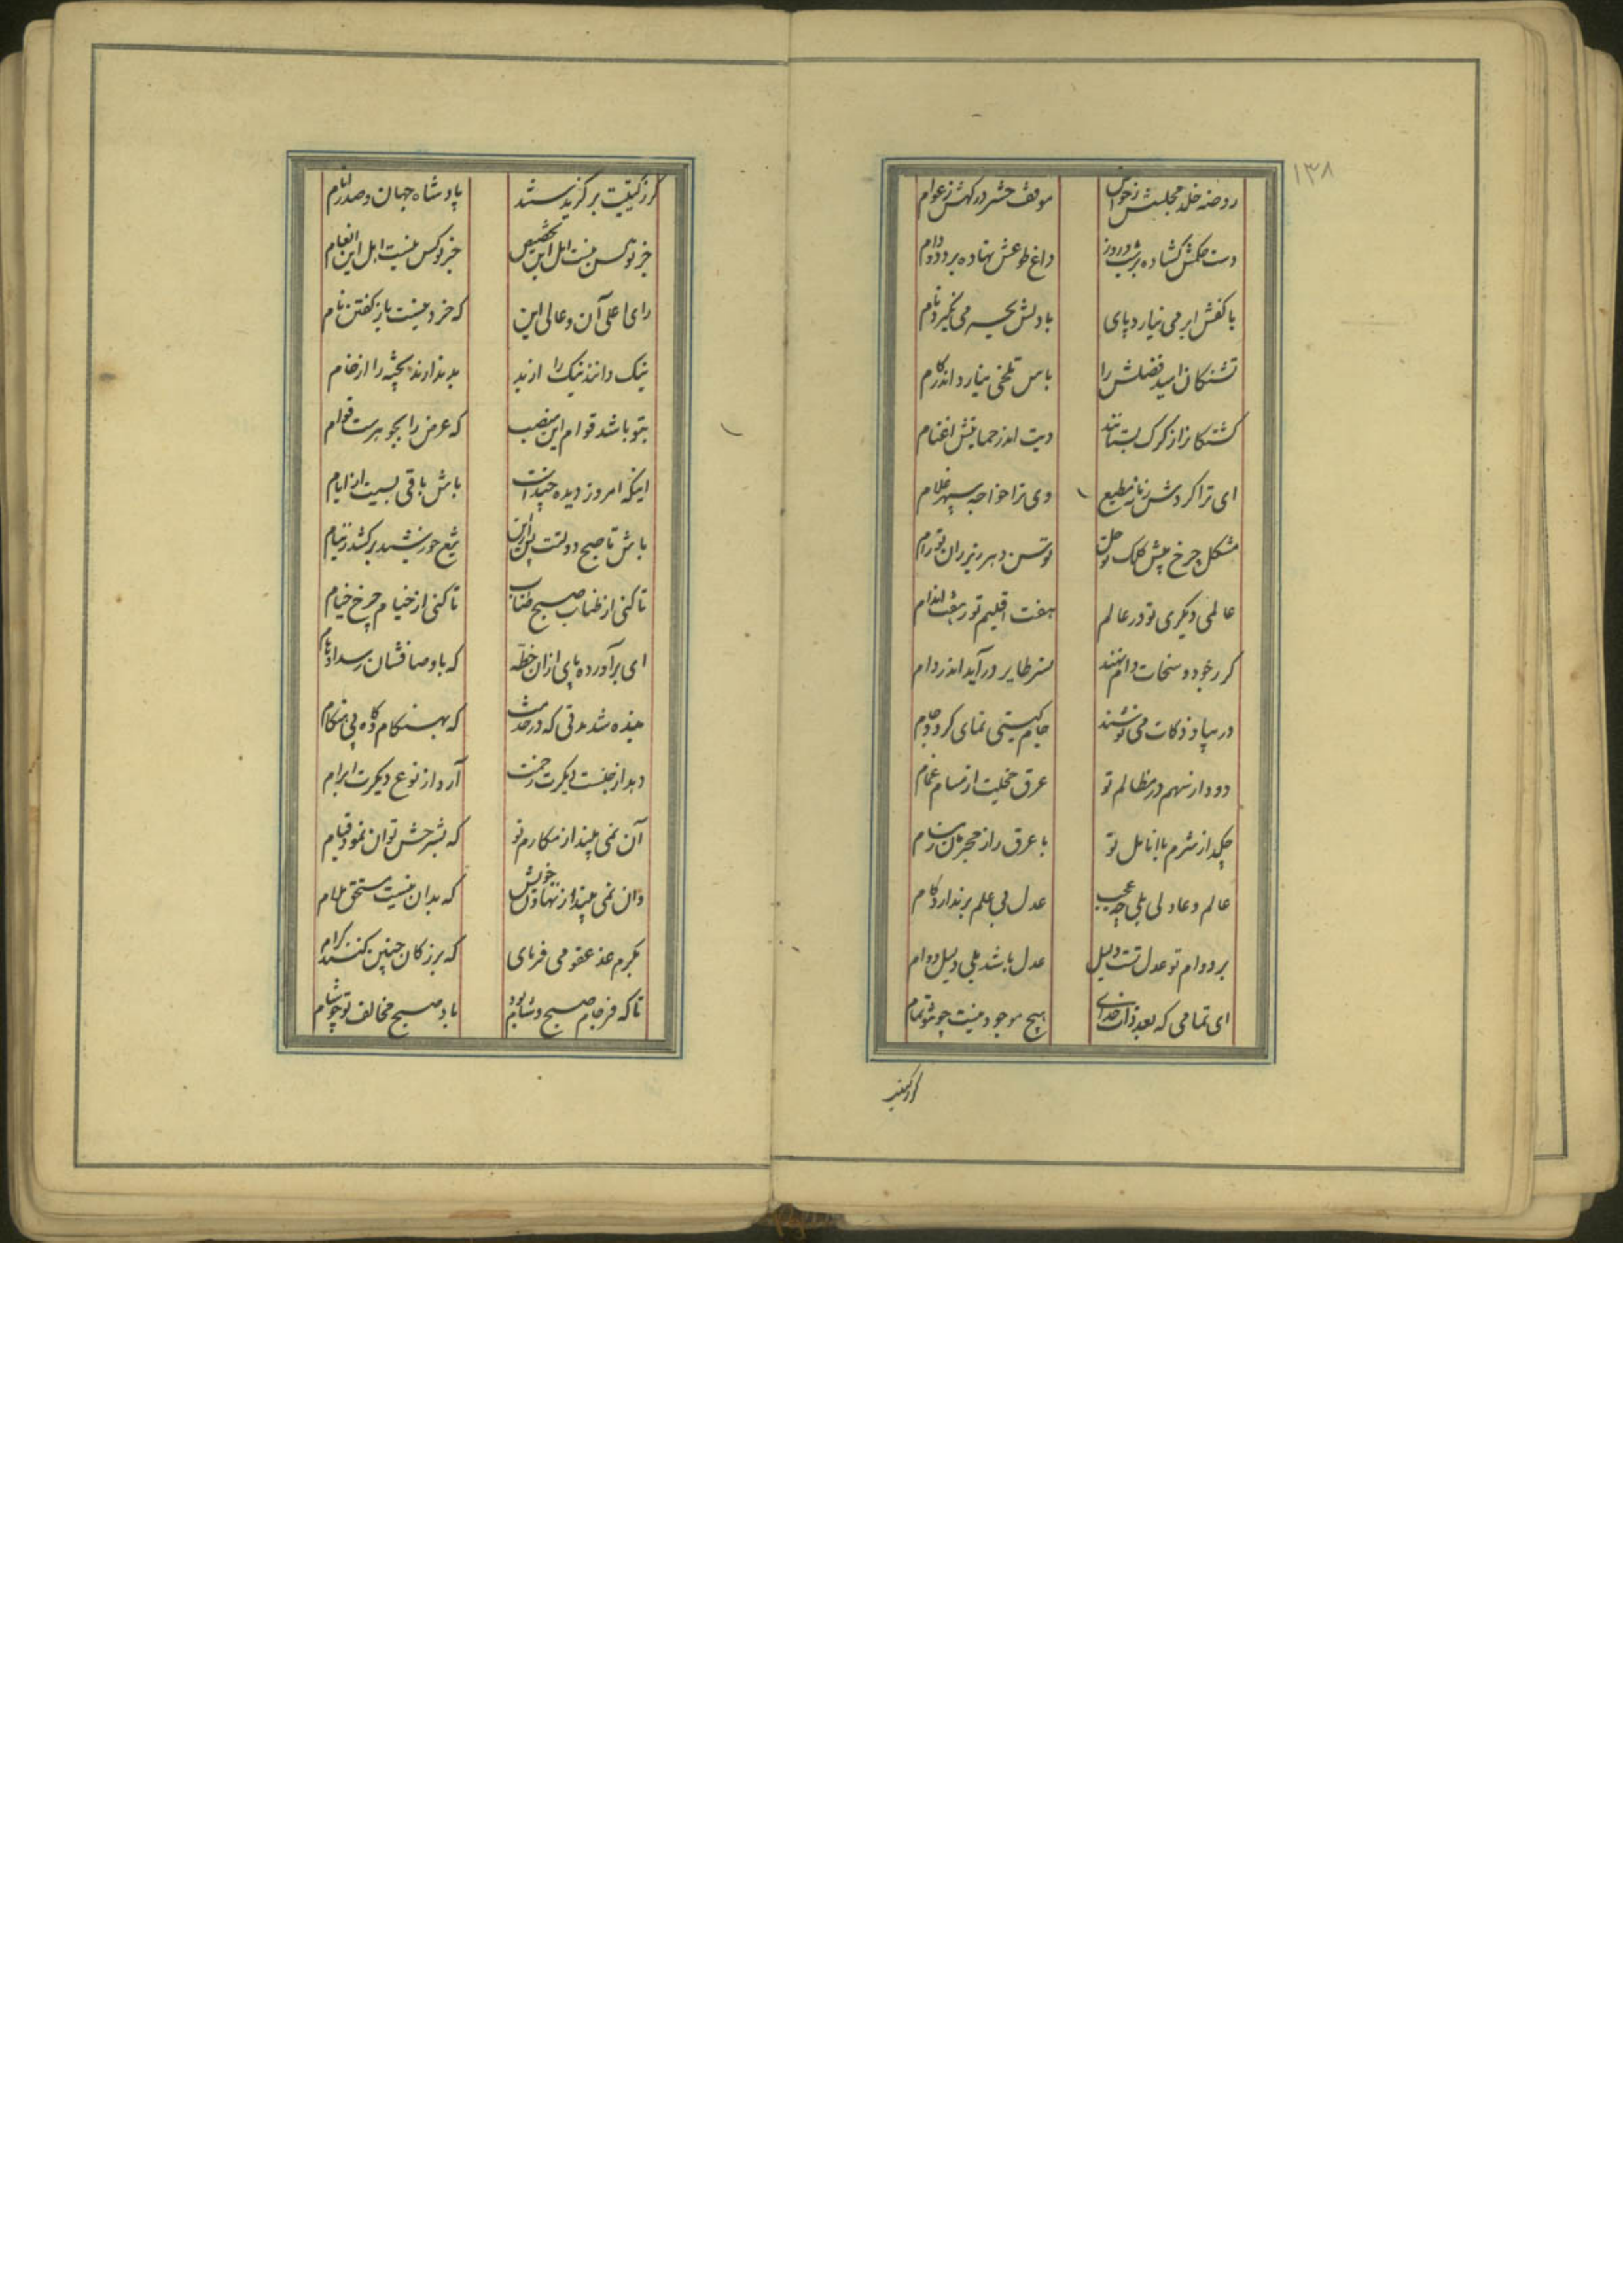 ۱۳۸
روضه خلد مجلسش ز خواص موقف حشر درگهش ز عوام
دست حکمش گشاده بر شب و روز داغ طوعش نهاده بر دد و دام
با کفش ابر می نیارد پای با دلش بحر می نگیرد نام
تشنگان امید فضلش را یاس تلخی نیارد اندر کام
کشتگانرا ز گرگ بستانند دیت اندر حمایتش اغنام
ای ترا گردش زمانه مطیع وی ترا خواجه سپهر غلام
مشکل چرخ پیش کلک تو حل توسن دهر زیر ران تو رام
عالمی دیگری تو در عالم هفت اقلیم تو ز هفت اندام
گر ز جود و سخات دام نهند نسر طایر در آید اندر دام
در بیاد ذکات می نوشند جام گیتی نمای گردد جام
دود از سهم در مظالم تو عرق خجلت از مسام غمام
چکد از شرم با انامل تو با عرق راز مجرمان ز مسام
عالم و عادلی بلی چه عجب عدل بی علم بر ندارد گام
بر دوام تو عدل تست دلیل عدل باشد بلی دلیل دوام
ای تمامی که بعد ذات خدای هیچ موجود نیست چو تو تمام
کز کیتیت
کز کیتیت برگزیدستند پادشاه جهان و صدر انام
جز تو کس نیست اهل این تخصیص جز تو کس نیست اهل این انعام
رای اعلی آن و عالی این که خرد نیست باز گفتن نام
نیک دانند نیک را از بد بد ندارند پخته را از خام
بتو باشد قوام این منصب که عرض را بجوهرست قوام
اینکه امروز دیده چندانست باش باقی بسیست از ایام
باش تا صبح دولتت پس ازین تیغ خورشید برکشد ز نیام
تا کنی از طناب صبح طناب تا کنی از خیام چرخ خیام
ای برآورده پای ازان خطه که باوصافشان رسد اوهام
بنده شد مدتی که در خدمت که بهنگام و گاه بی هنگام
دهد از جنست دیگرت زحمت آرد از نوع دیگرت ابرام
آن نمی بیند از مکارم تو که بشرحش توان نمود قیام
وان نمی بیند از تهاون خویش که بدان نیست مستحق ملام
بکرم عذر عفو می فرمای که بزرگان چنین کنند کرام
تا که فرجام صبح شام بود باد صبح مخالف تو چو شام